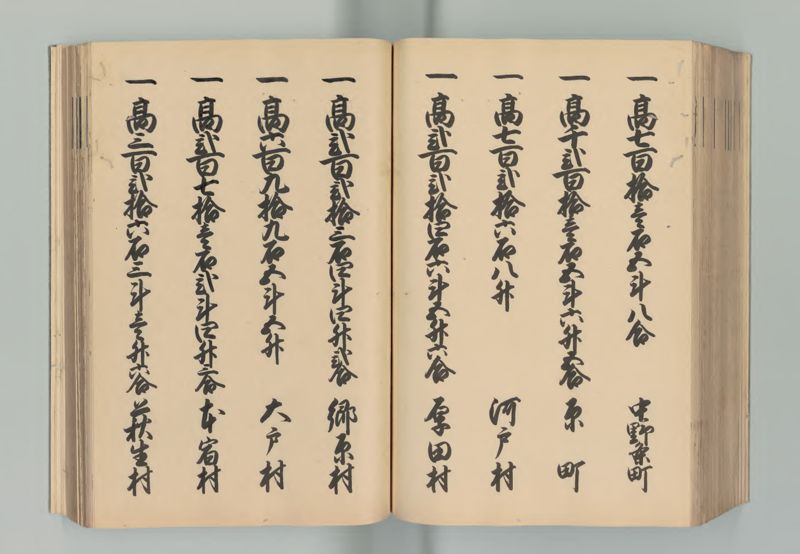 一 高七百拾壱石五斗八合 中野条町
一 高千弐百拾壱石五斗六升四合 原町
一 高七百弐拾六石八升 河戸村
一 高弐百弐拾四石六斗五升六合 厚田村
一 高弐百弐拾三石四斗四升弐合 郷原村
一 高六百九拾九石五斗五升 大戸村
一 高弐百七拾壱石弐斗四升三合 本宿村
一 高三百弐拾六石三斗壱升六合 萩生村